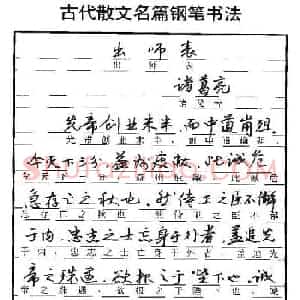 古代散文名篇钢笔书法
出师表
出师表
诸葛亮
诸葛亮
先帝创业未半,而中道崩殂。
先帝创业未半,而中道崩殂。
今天下三分,益州疲敝,此诚危
今天下三分,益州疲敝,此诚危
急存亡之秋也。然侍卫之臣不懈
急存亡之秋也。然侍卫之臣不懈
于内,忠志之士忘身于外者,盖追先
于内,忠志之士忘身于外者,盖追先
帝之殊遇,欲报之于陛下也。诚
帝之殊遇,欲报之于陛下也。诚